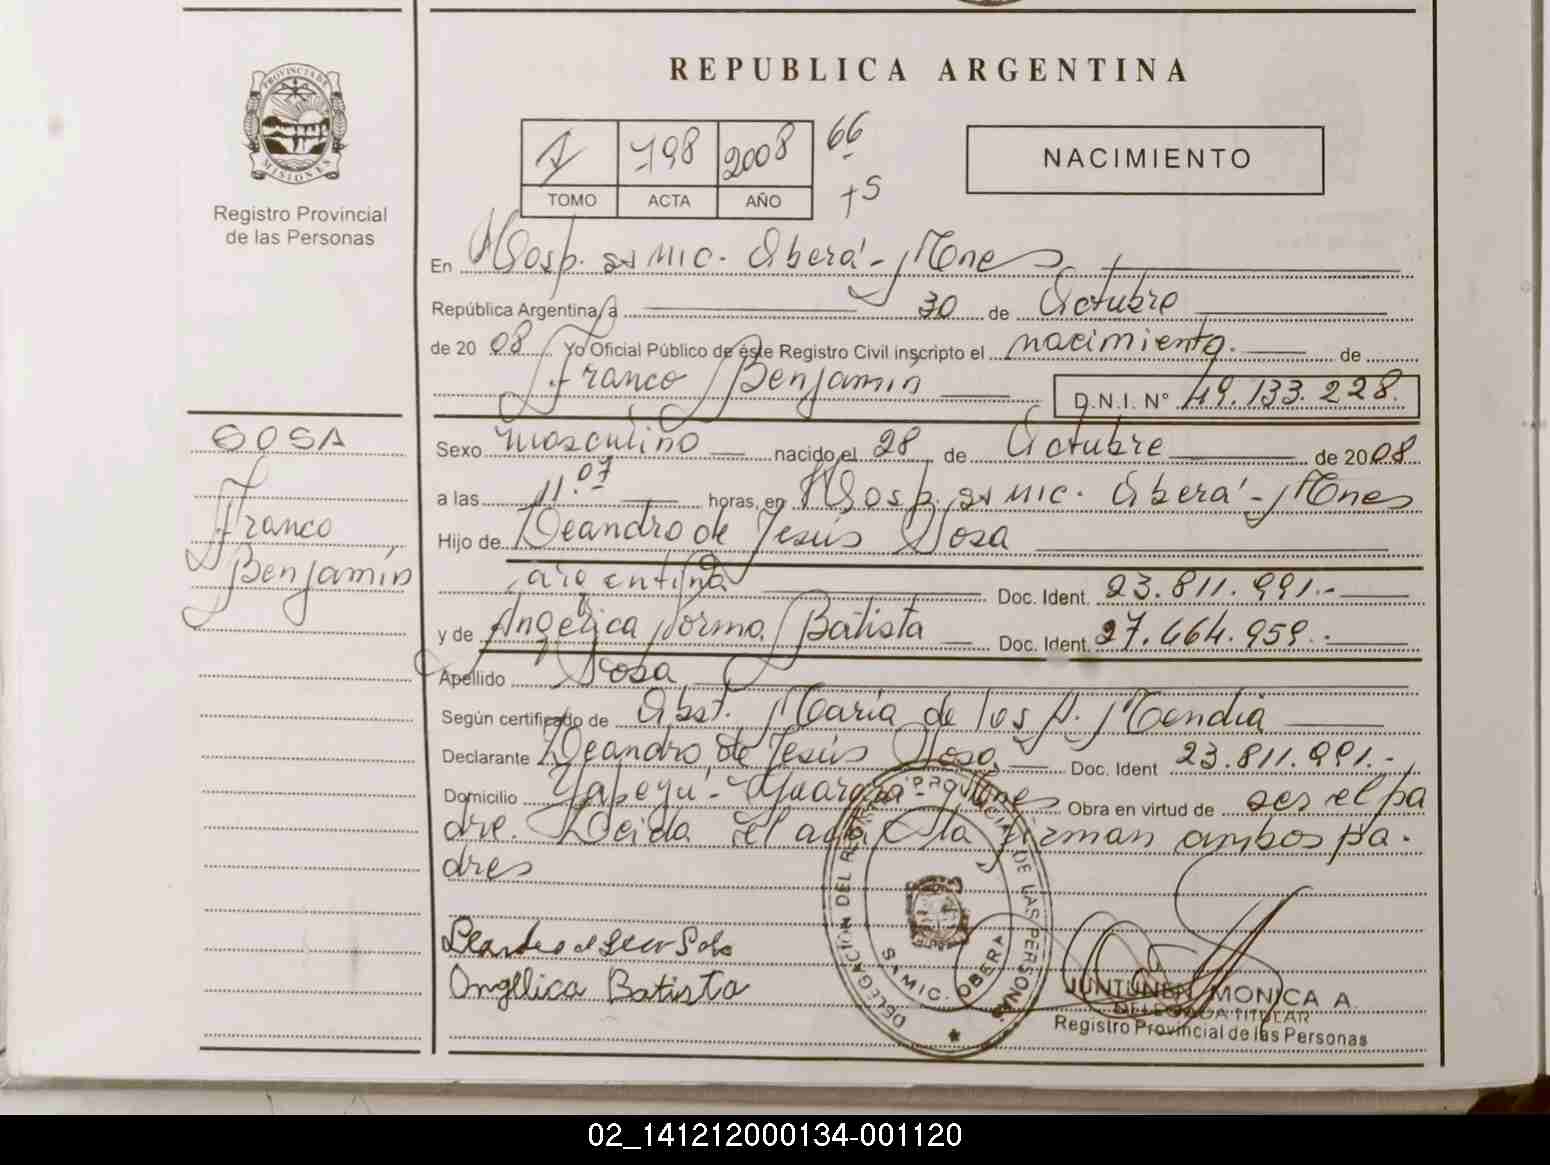 REPUBLICA ARGENTINA
PROVINCIA DE MISIONES
Registro Provincial
de las Personas
1 798 2008 66
TOMO ACTA AÑO +5
NACIMIENTO
En Hosp. SAMIC. Oberá - Mnes
República Argentina, a 30 de Octubre
de 20 08 Yo Oficial Público de éste Registro Civil inscripto el nacimiento. de
Franco Benjamín D.N.I. N° 49.133.228.
SOSA
Franco
Benjamín
Sexo masculino nacido el 28 de Octubre de 2008
a las 11.07 horas, en Hosp. SAMIC. Oberá - Mnes
Hijo de Leandro de Jesús Sosa
argentina Doc. Ident. 23.811.991.-
y de Angélica Norma Batista Doc. Ident. 27.464.959.-
Apellido Sosa
Según certificado de Obst. María de los A. Mendia
Declarante Leandro de Jesús Sosa Doc. Ident 23.811.991.-
Domicilio Yapeyú - Guaraní - Mnes Obra en virtud de ser el pa
dre. Leida el acta la firman ambos pa-
dres
Sosa
Angélica Batista
DELEGACIÓN DEL REGISTRO PROVINCIAL DE LAS PERSONAS
SAMIC. OBERA
JUNTUNEN MONICA A.
DELEGADA TITULAR
Registro Provincial de las Personas
02_141212000134-001120